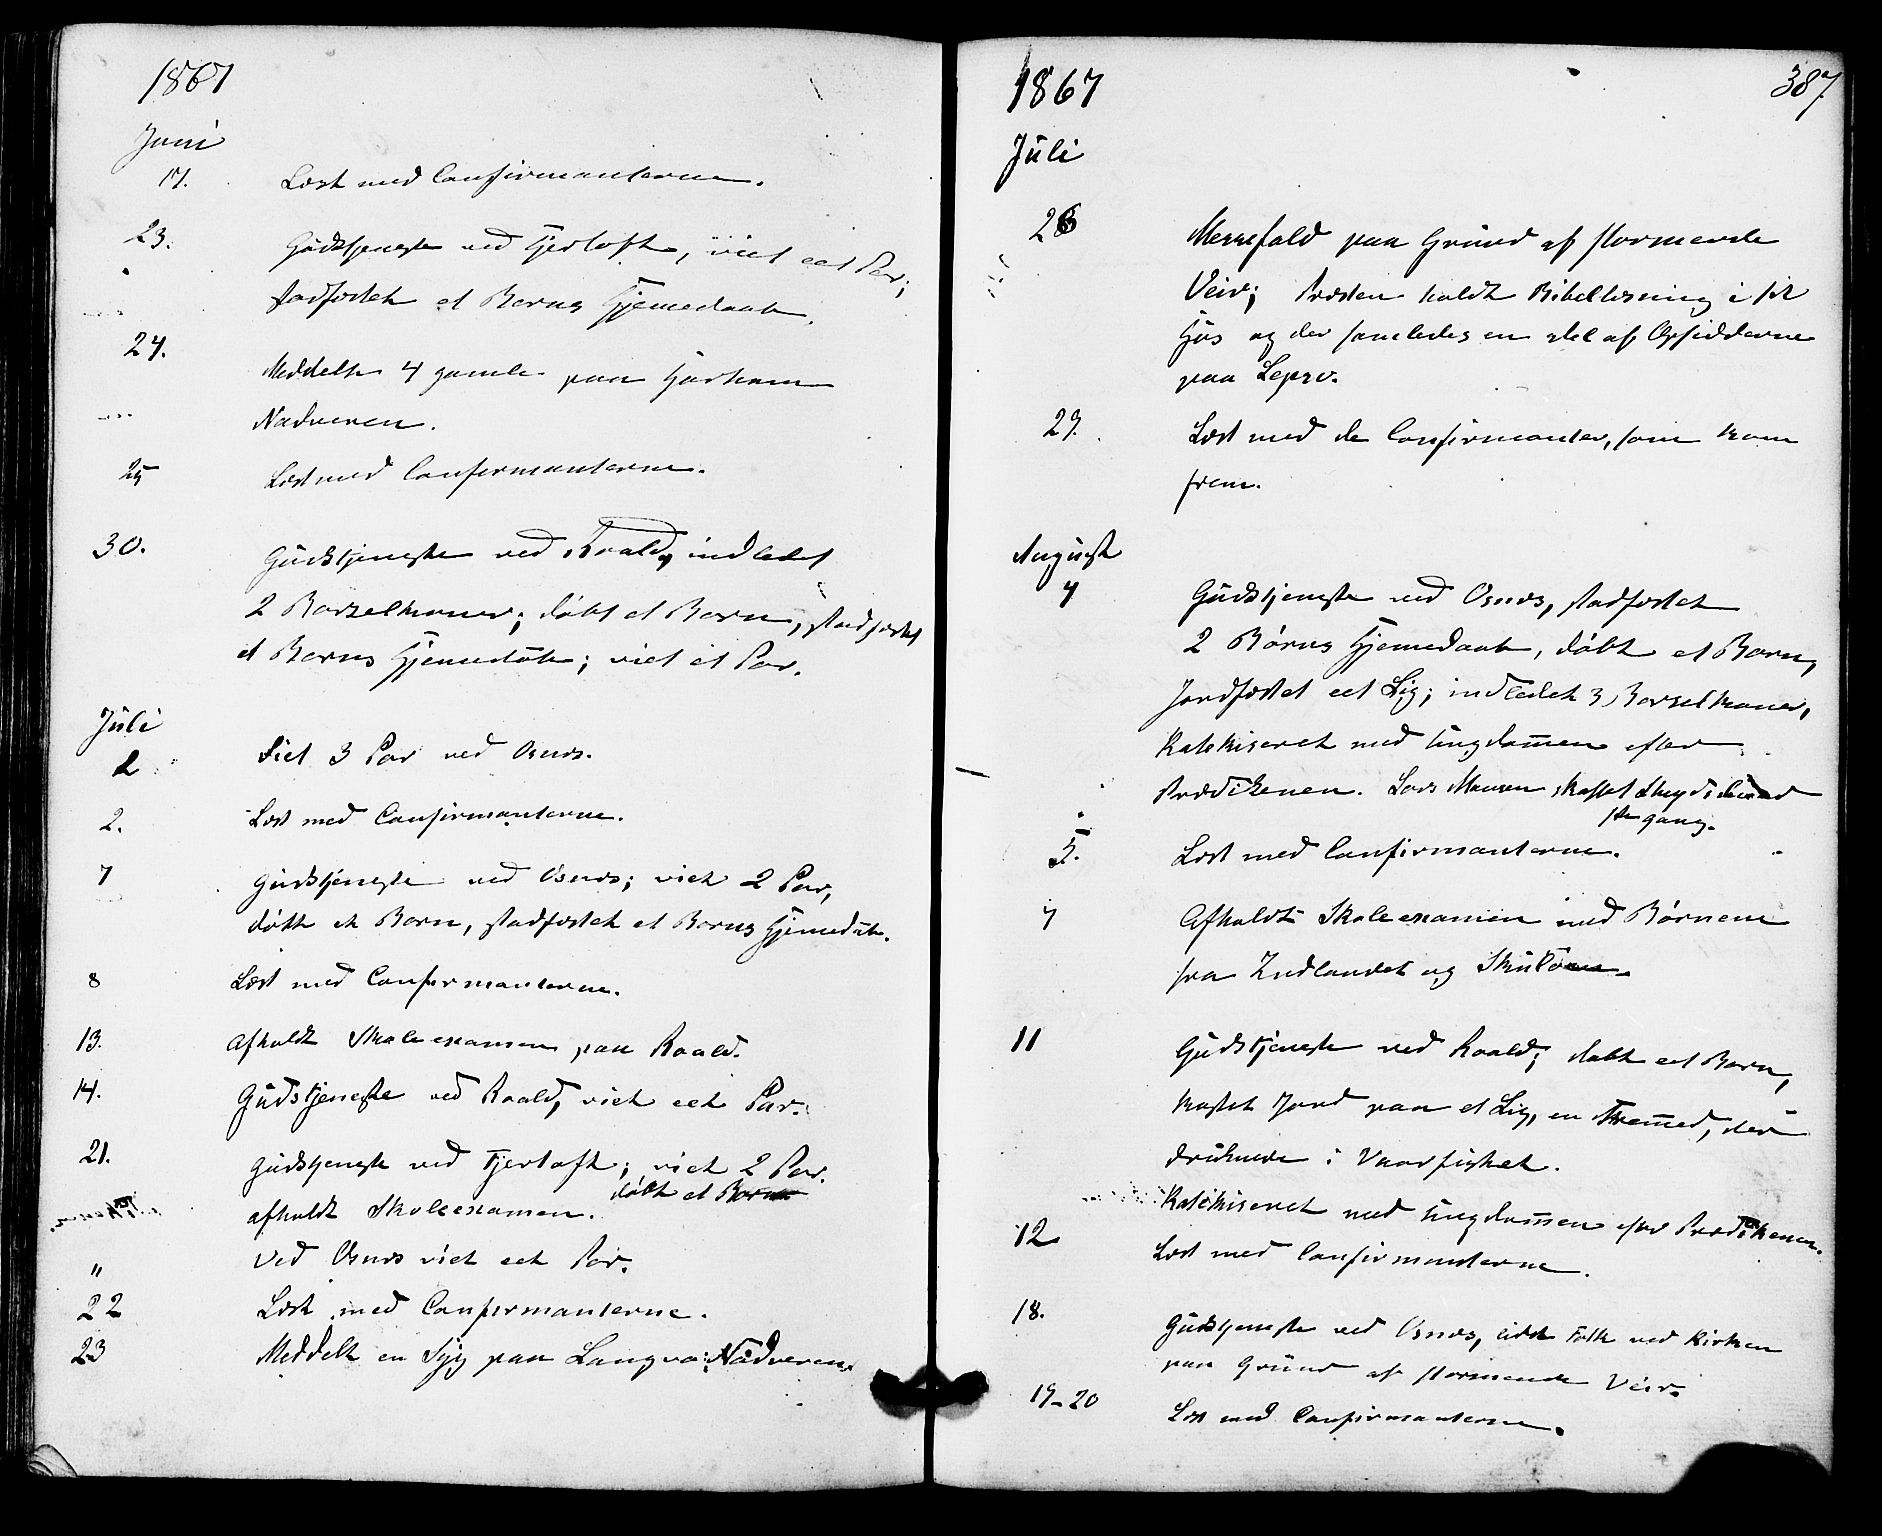 1867
Juni
17. Læst med Confirmanterne.
23. Gudstjeneste ved Fjertoft, viet eet Par;
stadfæstet et Barns Hjemedaab.
24. Meddelt 4 gamle paa Harham
Nadveren.
25 Læst med Confirmanterne.
30. Gudstjeneste ved Roald, indledet
2 Barselkoner; døbt et Barn, stadfæstet
et Barns Hjemedåb; viet et Par.
Juli
2 Viet 3 Par ved Osnæs.
2. Læst med Confirmanterne.
7 Gudstjeneste ved Osnæs; viet 2 Par,
døbt et Barn, stadfæstet et Barns Hjemedåb.
8 Læst med Confirmanterne.
13. Afholdt Skoleexamen paa Roald.
14. Gudstjeneste ved Roald, viet eet Par.
21. Gudstjeneste ved Fjertoft; viet 2 Par.
døbt et Barn
afholdt Skoleexamen.
" Ved Osnæs viet eet Par.
22 Læst med Confirmanterne.
23 Meddelt en Syg paa Langva Nadveren.
1867 387.
Juli
28 Messefald paa Grund af stormende
Veir; Præsten holdt Bibellæsning i sit
Hus og der samledes en del af Opsidderne
paa Lepsø.
29. Læst med de Confirmanter, som kom
frem.
August
4 Gudstjeneste ved Osnæs, stadfæstet
2 Børns Hjemedaab, døbt et Barn,
Jordfæstet eet Lig; indledet 3 Barselkoner,
Katekiseret med Ungdommen efter
Prædikenen. Lars
1ste gang.
5. Læst med Confirmanterne.
7 Afholdt Skoleexamen med Børnene
fra Indlandet og Skuløen.
11 Gudstjeneste ved Roald; døbt eet Barn,
kastet Jord paa et Lig, en Fremmed, der
druknede i Vaarfisket.
Katekiseret med Ungdommen efter Prædikenen.
12 Læst med Confirmanterne.
18. Gudstjeneste ved Osnæs, lidet Folk ved Kirken
paa Grund af stormende Veir.
19-20 Læst med Confirmanterne.